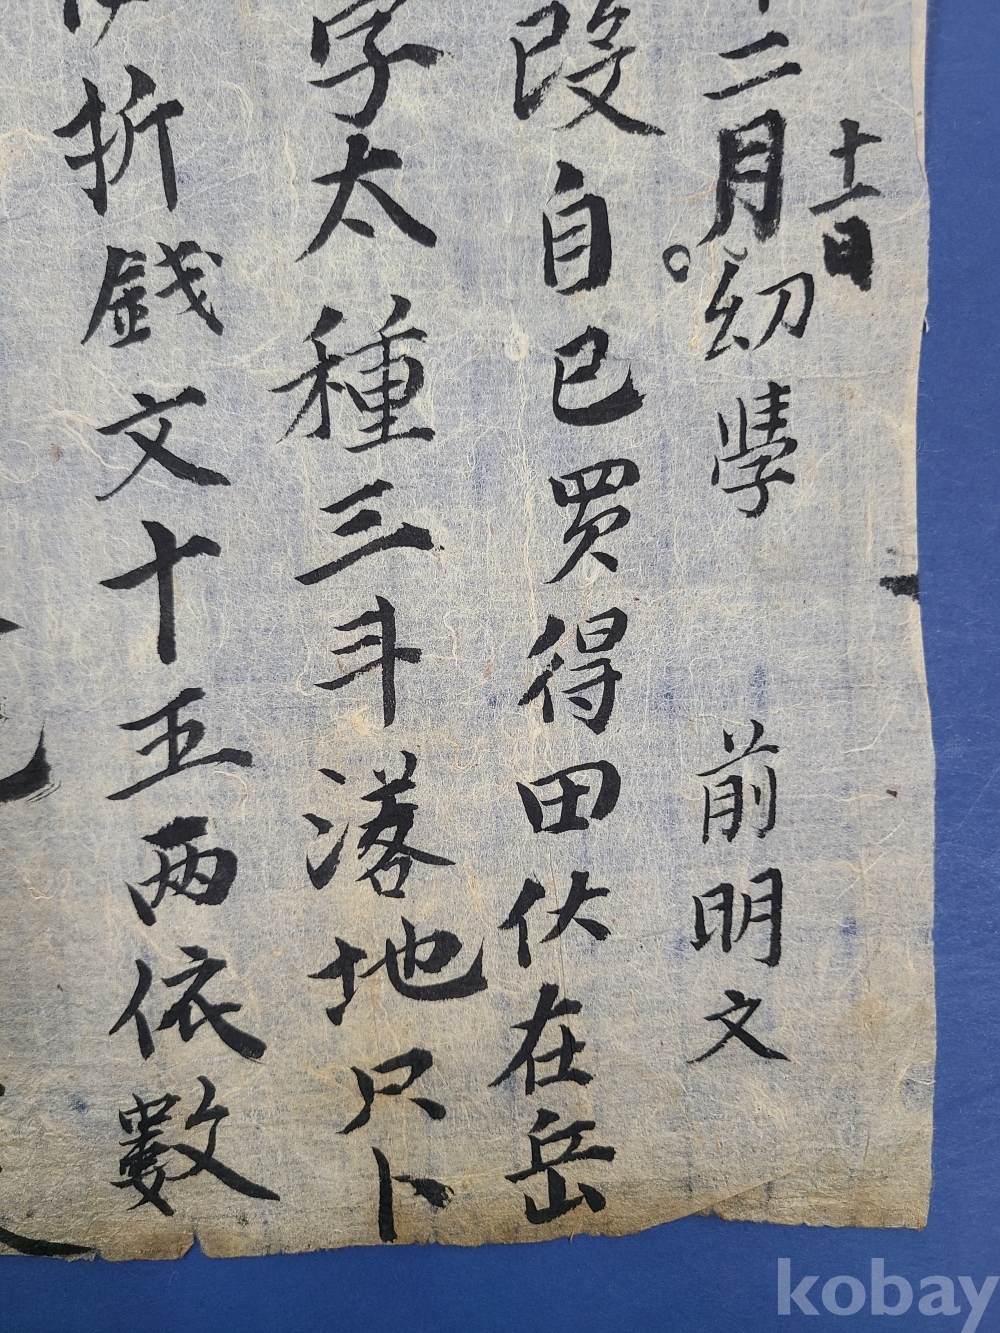 二月十一日幼學 前明文
段自已買得田伏在岳
字太種三斗落地尺卜
折錢文十五兩依數
kobay